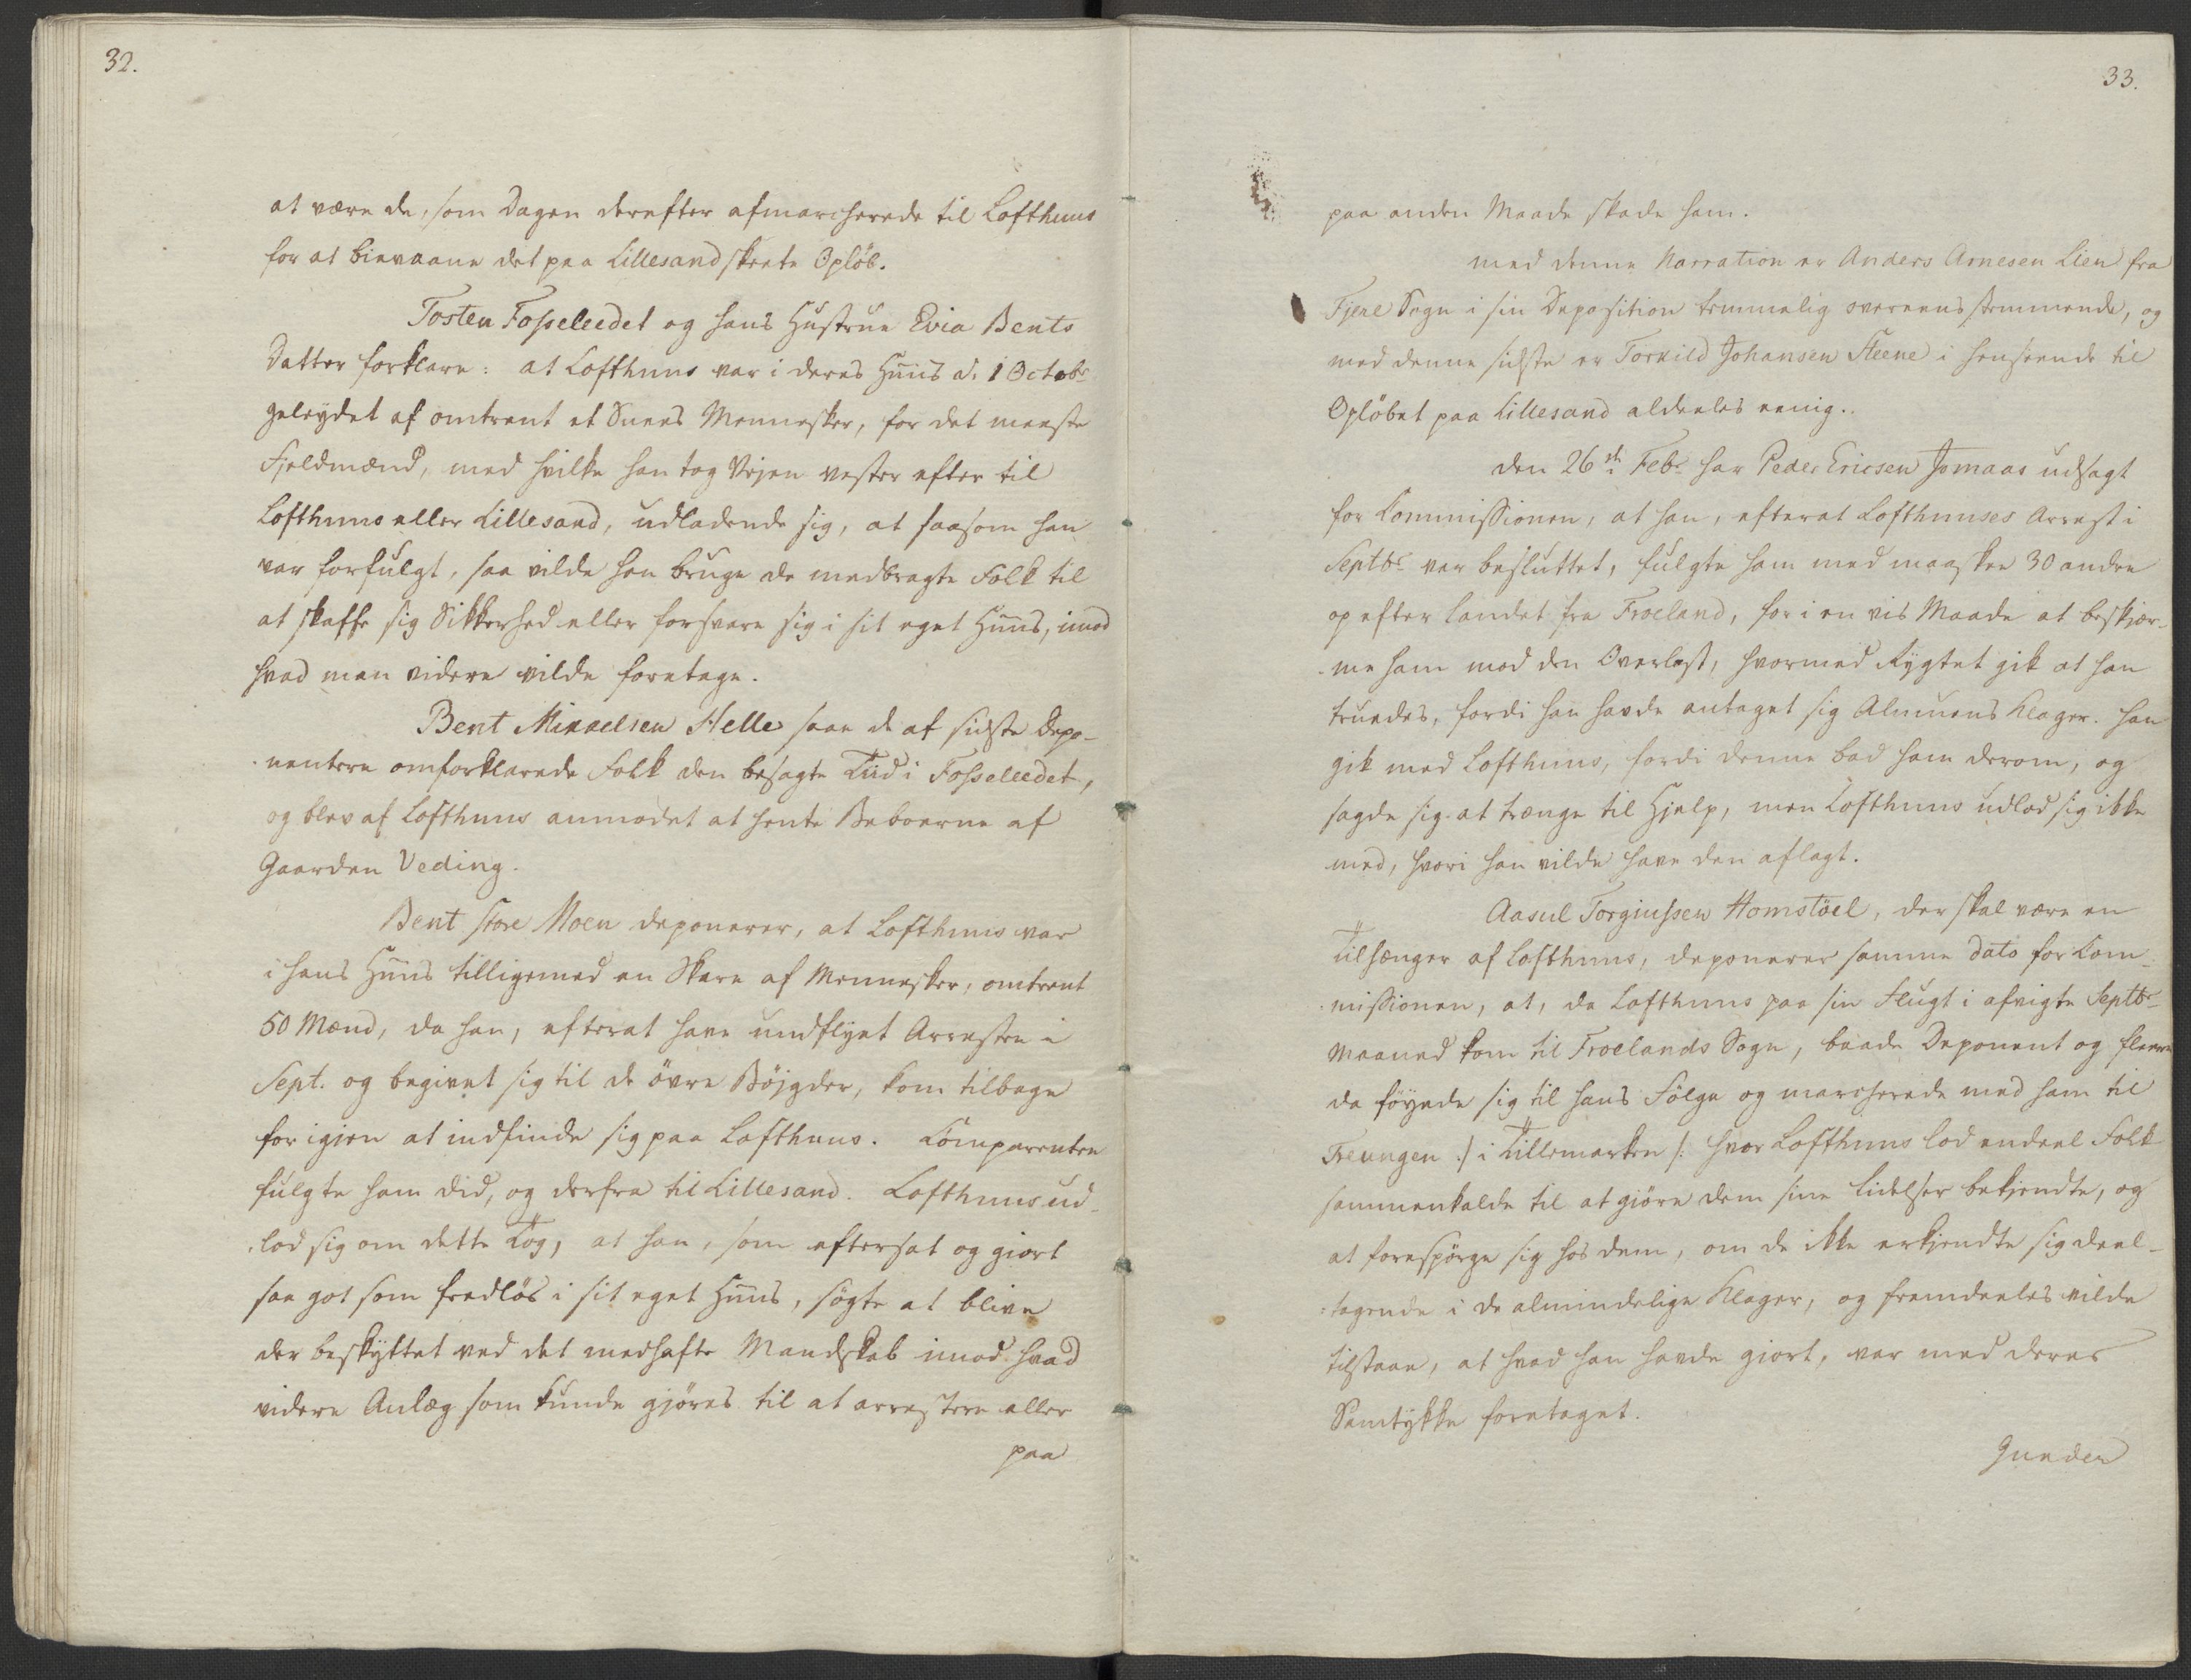 32.
at være de, som Dagen derefter afmarcherede til Lofthuus
for at bievaane det paa Lillesand skeete Opløb.
Tosten Fosseleedet og hans Hustrue Evia Bents
Datter forklare: at Lofthuus var i deres Huus d. 1 Octobr
geleydet af omtrent et Snees Mennesker, for det meeste
Fjeldmænd, med hvilke han tog Vejen vester efter til
Lofthuus eller Lillesand, udladende sig, at saasom han
var forfulgt, saa vilde han bruge de medbragte Folk til
at skaffe sig Sikkerhed eller forsvare sig i sit eget Huus, imod
hvad man videre vilde foretage.
Bent Mikaelsen Helle saae de af sidste Depo-
nentere omforklarede Folk den besagte Tiid i Fosseleedet,
og blev af Lofthuus anmodet at hente Beboerne af
Gaarden Veding.
Bent store Moen deponerer, at Lofthuus var
i hans Huus tilligemed en Skare af Mennesker, omtrent
50 Mænd, da han, efterat have undflyet Arresten i
Sept. og begivet sig til de øvre Bøjgder, kom tilbage
for igjen at indfinde sig paa Lofthuus. Comparenten
fulgte ham did, og derfra til Lillesand. Lofthuus ud-
lod sig om dette Tog, at han, som eftersat og giort
saa got som fredløs i sit eget Huus, søgte at blive
der beskyttet ved det medhafte Mandskab imod hvad
videre Anlæg som kunde gjøres til at arrestere eller
paa
33.
paa anden Maade skade ham.
med denne Narration er Anders Arnesen Lien fra
Fjere Sogn i sin Deposition temmelig overeensstemmende, og
med denne sidste er Torkild Johansen Steene i henseende til
Opløbet paa Lillesand aldeeles eenig.
den 26de Febr. har Peder Ericsen Jomaas udsagt
for Commissionen, at han, efterat Lofthuuses Arrest i
Septbr var besluttet, fulgte ham med maaskee 30 andre
op efter landet fra Froeland, for i en vis Maade at beskjær-
me ham mod den Overlast, hvormed Rygtet gik at han
truedes, fordi han havde antaget sig Almuens Klager. Han
gik med Lofthuus, fordi denne bad ham derom, og
sagde sig at trænge til Hjelp, men Lofthuus udlod sig ikke
med, hvori han vilde have den aflagt.
Aasul Torgiussen Homstøel, der skal være en
Tilhænger af Lofthuus, deponerer samme dato for Com-
missionen, at, da Lofthuus paa sin Flugt i afvigte Septbr
Maaned kom til Froelands Sogn, baade Deponent og fleere
da føyede sig til hans Følge og marcherede med ham til
Treungen /: i Tillemarken :/ hvor Lofthuus lod endeel Folk
sammenkalde til at giøre dem sine Lidelser bekjendte, og
at forespørge sig hos dem, om de ikke erkjendte sig deel-
tagende i de almindelige Klager, og fremdeeles vilde
tilstaae, at hvad han havde giort, var med deres
Samtykke foretaget.
Gunder